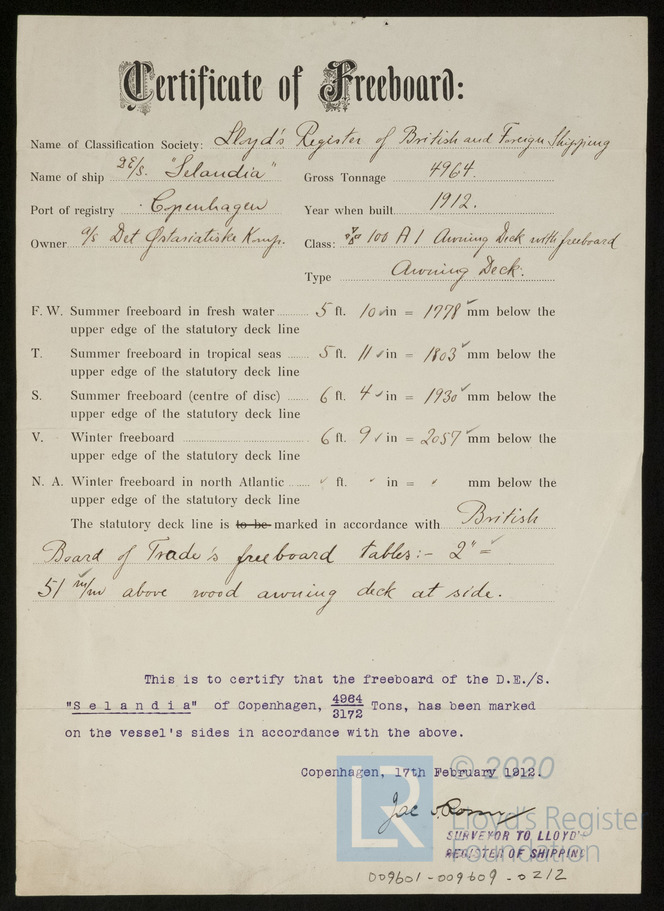 Certificate of Freeboard:
Name of Classification Society: Lloyd's Register of British and Foreign Shipping
Name of ship DE/s. "Selandia" Gross Tonnage 4964.
Port of registry Copenhagen Year when built 1912.
Owner a/s Det Østasiatiske Komp. Class: 100 A 1 Awning Deck with freeboard
Type Awning Deck.
F. W. Summer freeboard in fresh water 5 ft. 10 in = 1778 mm below the
upper edge of the statutory deck line
T. Summer freeboard in tropical seas 5 ft. 11 in = 1803 mm below the
upper edge of the statutory deck line
S. Summer freeboard (centre of disc) 6 ft. 4 in = 1930 mm below the
upper edge of the statutory deck line
V. Winter freeboard 6 ft. 9 in = 2057 mm below the
upper edge of the statutory deck line
N. A. Winter freeboard in north Atlantic " ft. " in = " mm below the
upper edge of the statutory deck line
The statutory deck line is to be marked in accordance with British
Board of Trade's freeboard tables:- 2" =
51 m/m above wood awning deck at side.
This is to certify that the freeboard of the D.E./S.
"Selandia" of Copenhagen, 4964/3172 Tons, has been marked
on the vessel's sides in accordance with the above.
Copenhagen, 17th February 1912.
Jac
SURVEYOR TO LLOYD'S
REGISTER OF SHIPPING
009601-009609-0212
LR © 2020
Lloyd's Register
Foundation